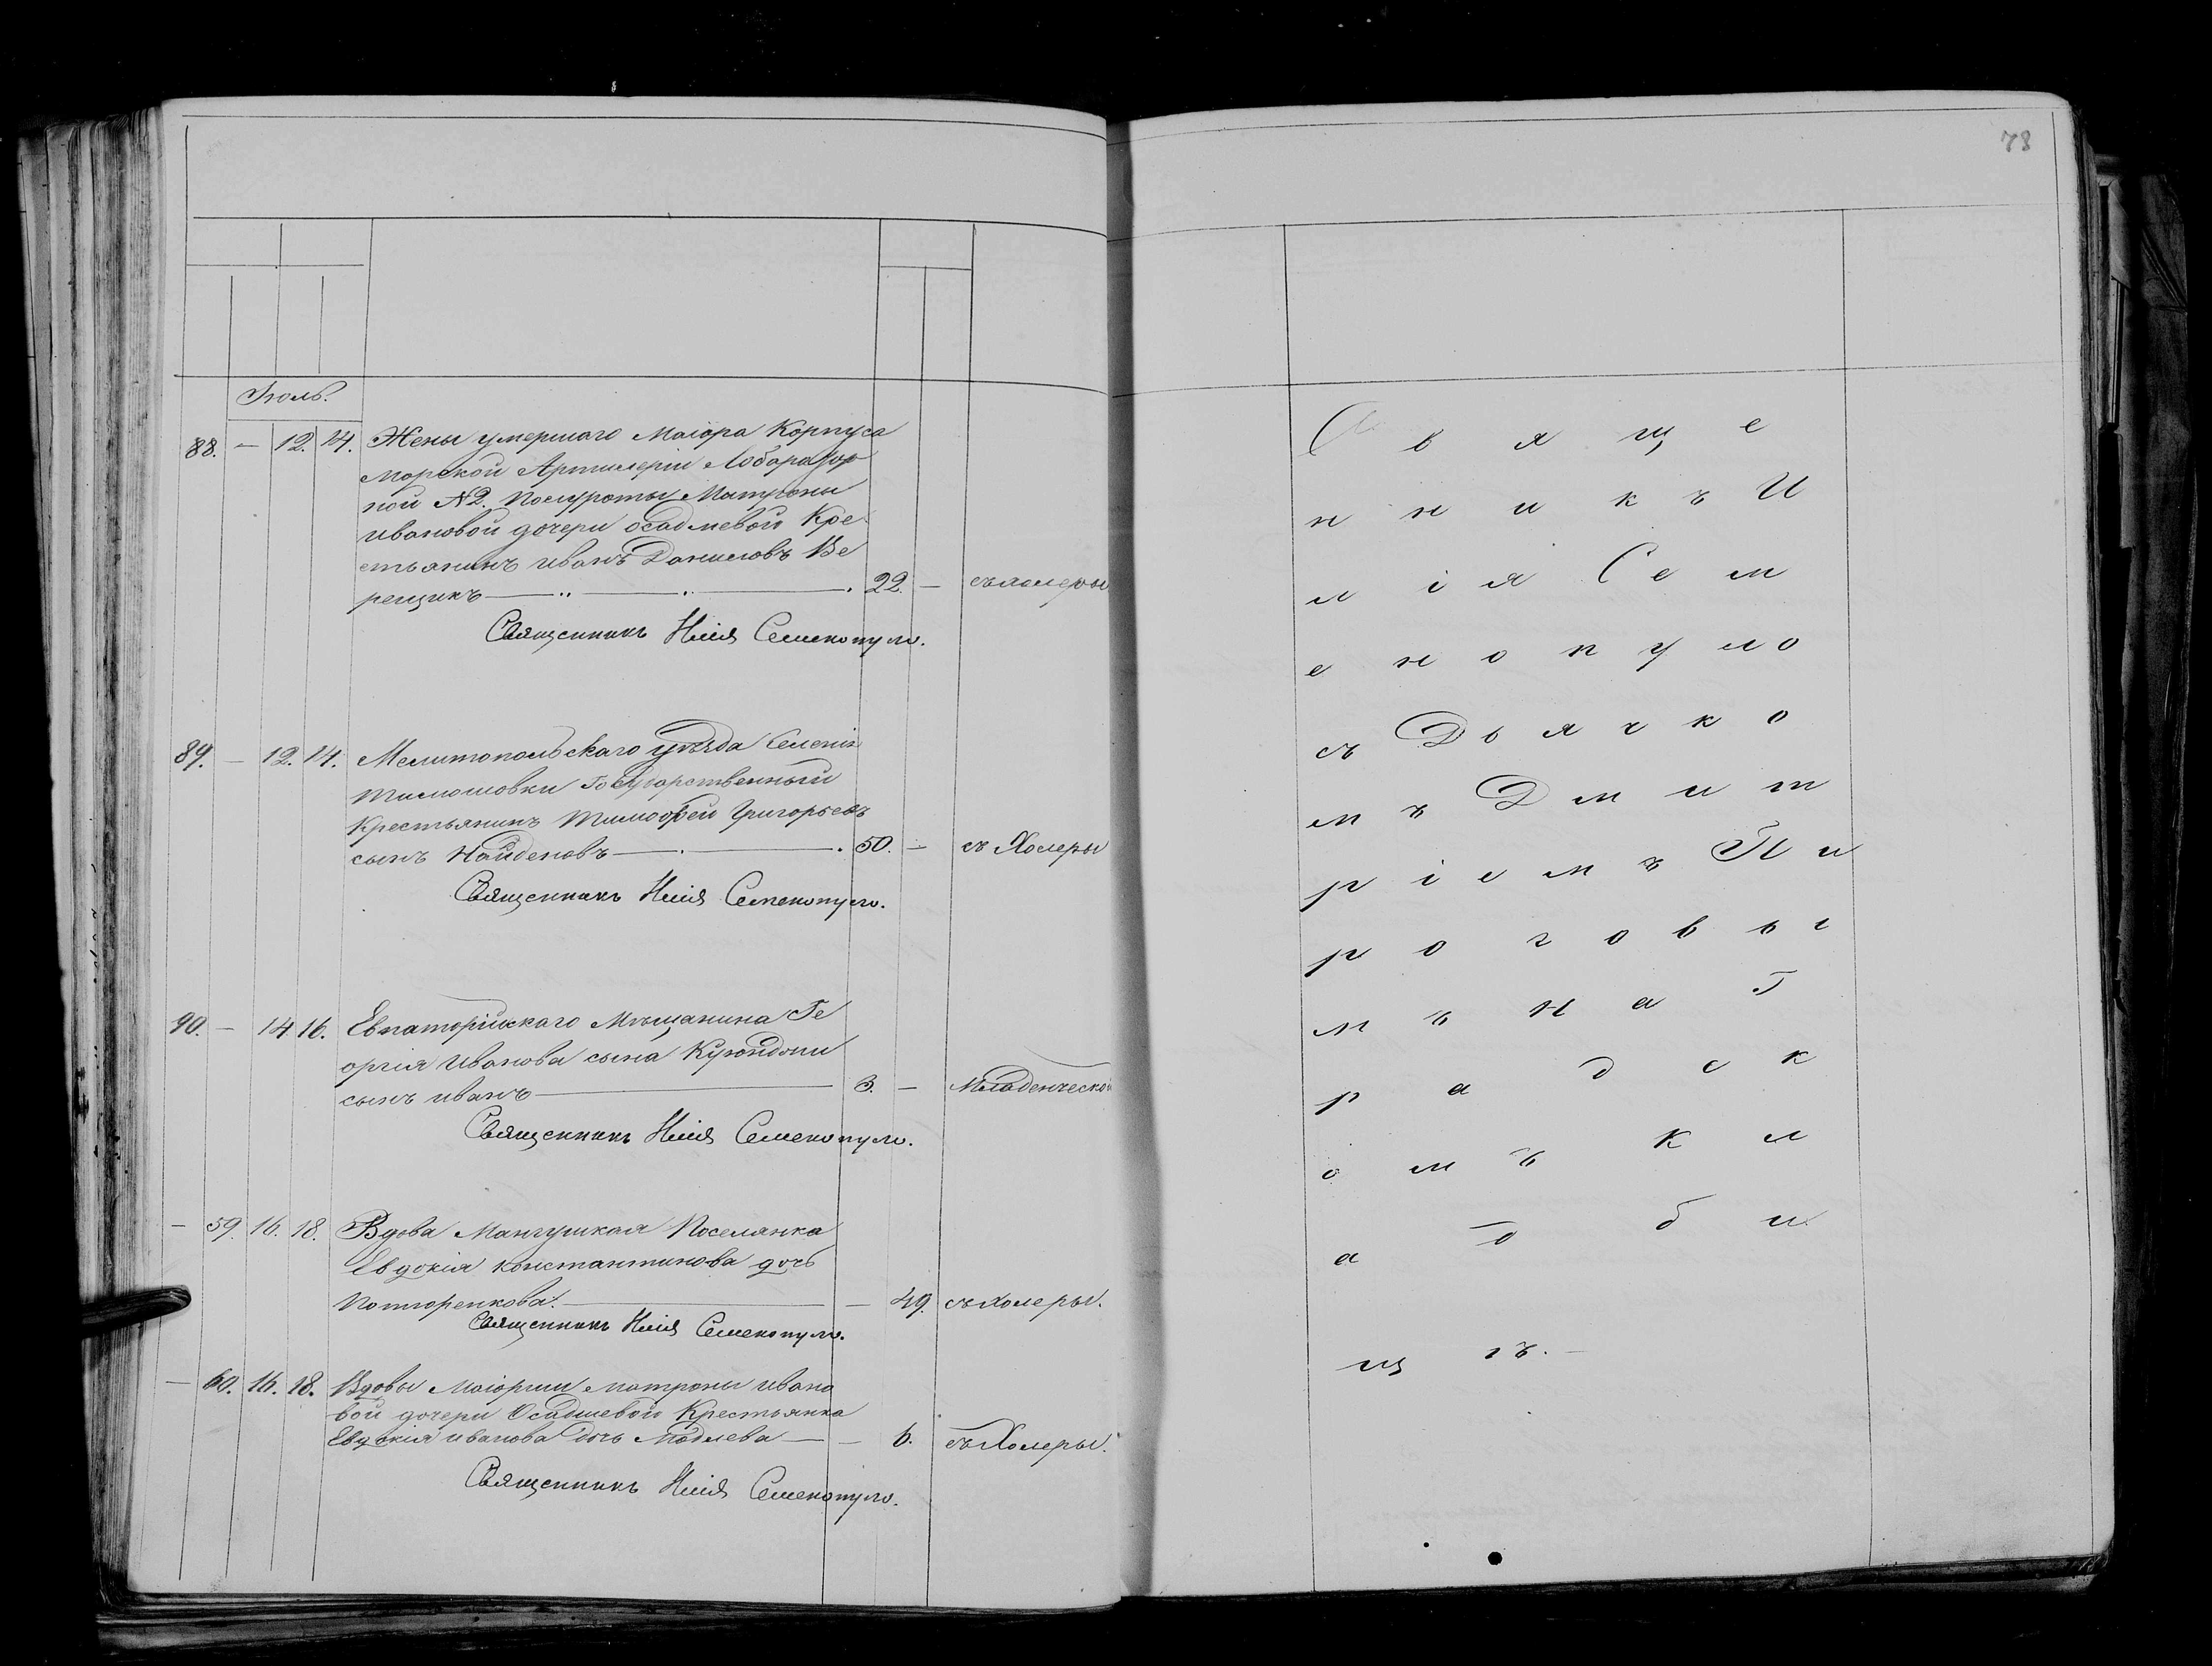 78
Іюль.
88. — 12. 14. Жены умершаго Маіора Корпуса
Морской Артилеріи Лобораtор
ной №2. Полуроты Матроны
Ивановой дочери Осадшевой Кре
стьянинъ Иванъ Даниловъ Ве
рещикъ — 22. — съ холеры
Священникъ Илія Семенопуло.
89. — 12. 14. Мелитопольскаго уѣзда Селенія
Тимошовки Государственный
Крестьянинъ Тимофей Григорьевъ
сынъ Найденовъ — 50. — съ Холеры
Священникъ Илія Семенопуло.
90. — 14 16. Евпаторійскаго Мѣщанина Ге
оргія Иванова сына
сынъ Иванъ — 3. — Младенческой
Священникъ Илія Семенопуло.
— 59. 16. 18. Вдова Мангушская Поселянка
Евдокія Константинова дочь
— — 49. съ холеры.
Священникъ Илія Семенопуло.
— 60. 16. 18. Вдовы Маіорши Матроны Ивано
вой дочери Осадшевой Крестьянка
Евдокія Иванова дочь — — 6. съ Холеры.
Священникъ Илія Семенопуло.
С в я щ е
н н и к ъ И
л і я С е м
е н о п у л о
съ Д ь я ч к о
м ъ Д м и т
р і е м ъ П и
р о г о в ы
м ъ Н а Г
р а д с к
о м ъ К л
а д б и
щ ѣ. —